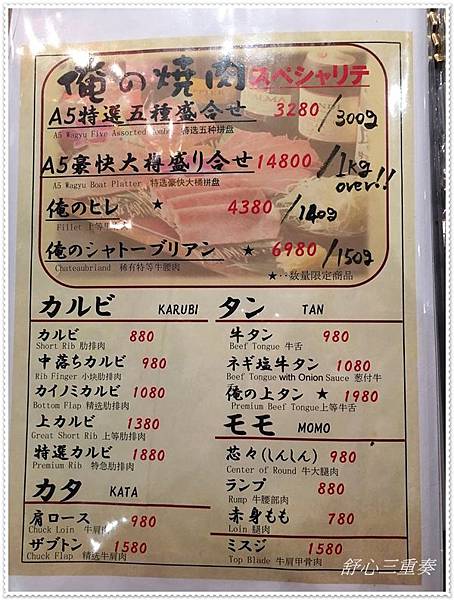 俺の焼肉 スペシャリテ
A5特選五種盛合せ 3280/300g
A5 Wagyu Five Assorted 特选五种拼盘
A5豪快大樽盛り合せ 14800/1kg over!!
A5 Wagyu Boat Platter 特选豪快大桶拼盘
俺のヒレ ★ 4380/140g
Fillet 上等
俺のシャトーブリアン ★ 6980/150g
Chateaubrland 稀有特等牛腰肉
★‥数量限定商品
カルビ KARUBI
カルビ 880
Short Rib 肋排肉
中落ちカルビ 980
Rib Finger 小块肋排肉
カイノミカルビ 1080
Bottom Flap 精选肋排肉
上カルビ 1380
Great Short Rib 上等肋排肉
特選カルビ 1880
Premium Rib 特急肋排肉
カタ KATA
肩ロース 980
Chuck Loin 牛肩肉
ザブトン 1580
Chuck Flap 精选牛肩肉
タン TAN
牛タン 980
Beef Tongue 牛舌
ネギ塩牛タン 1080
Beef Tongue with Onion Sauce 葱付牛
舌
俺の上タン ★ 1980
Premium Beef Tongue上等牛舌
モモ MOMO
芯々(しんしん) 980
Center of Round 牛大腿肉
ランプ 880
Rump 牛腰部肉
赤身もも 780
Loin 腿肉
ミスジ 1580
Top Blade 牛肩甲骨肉
舒心三重奏